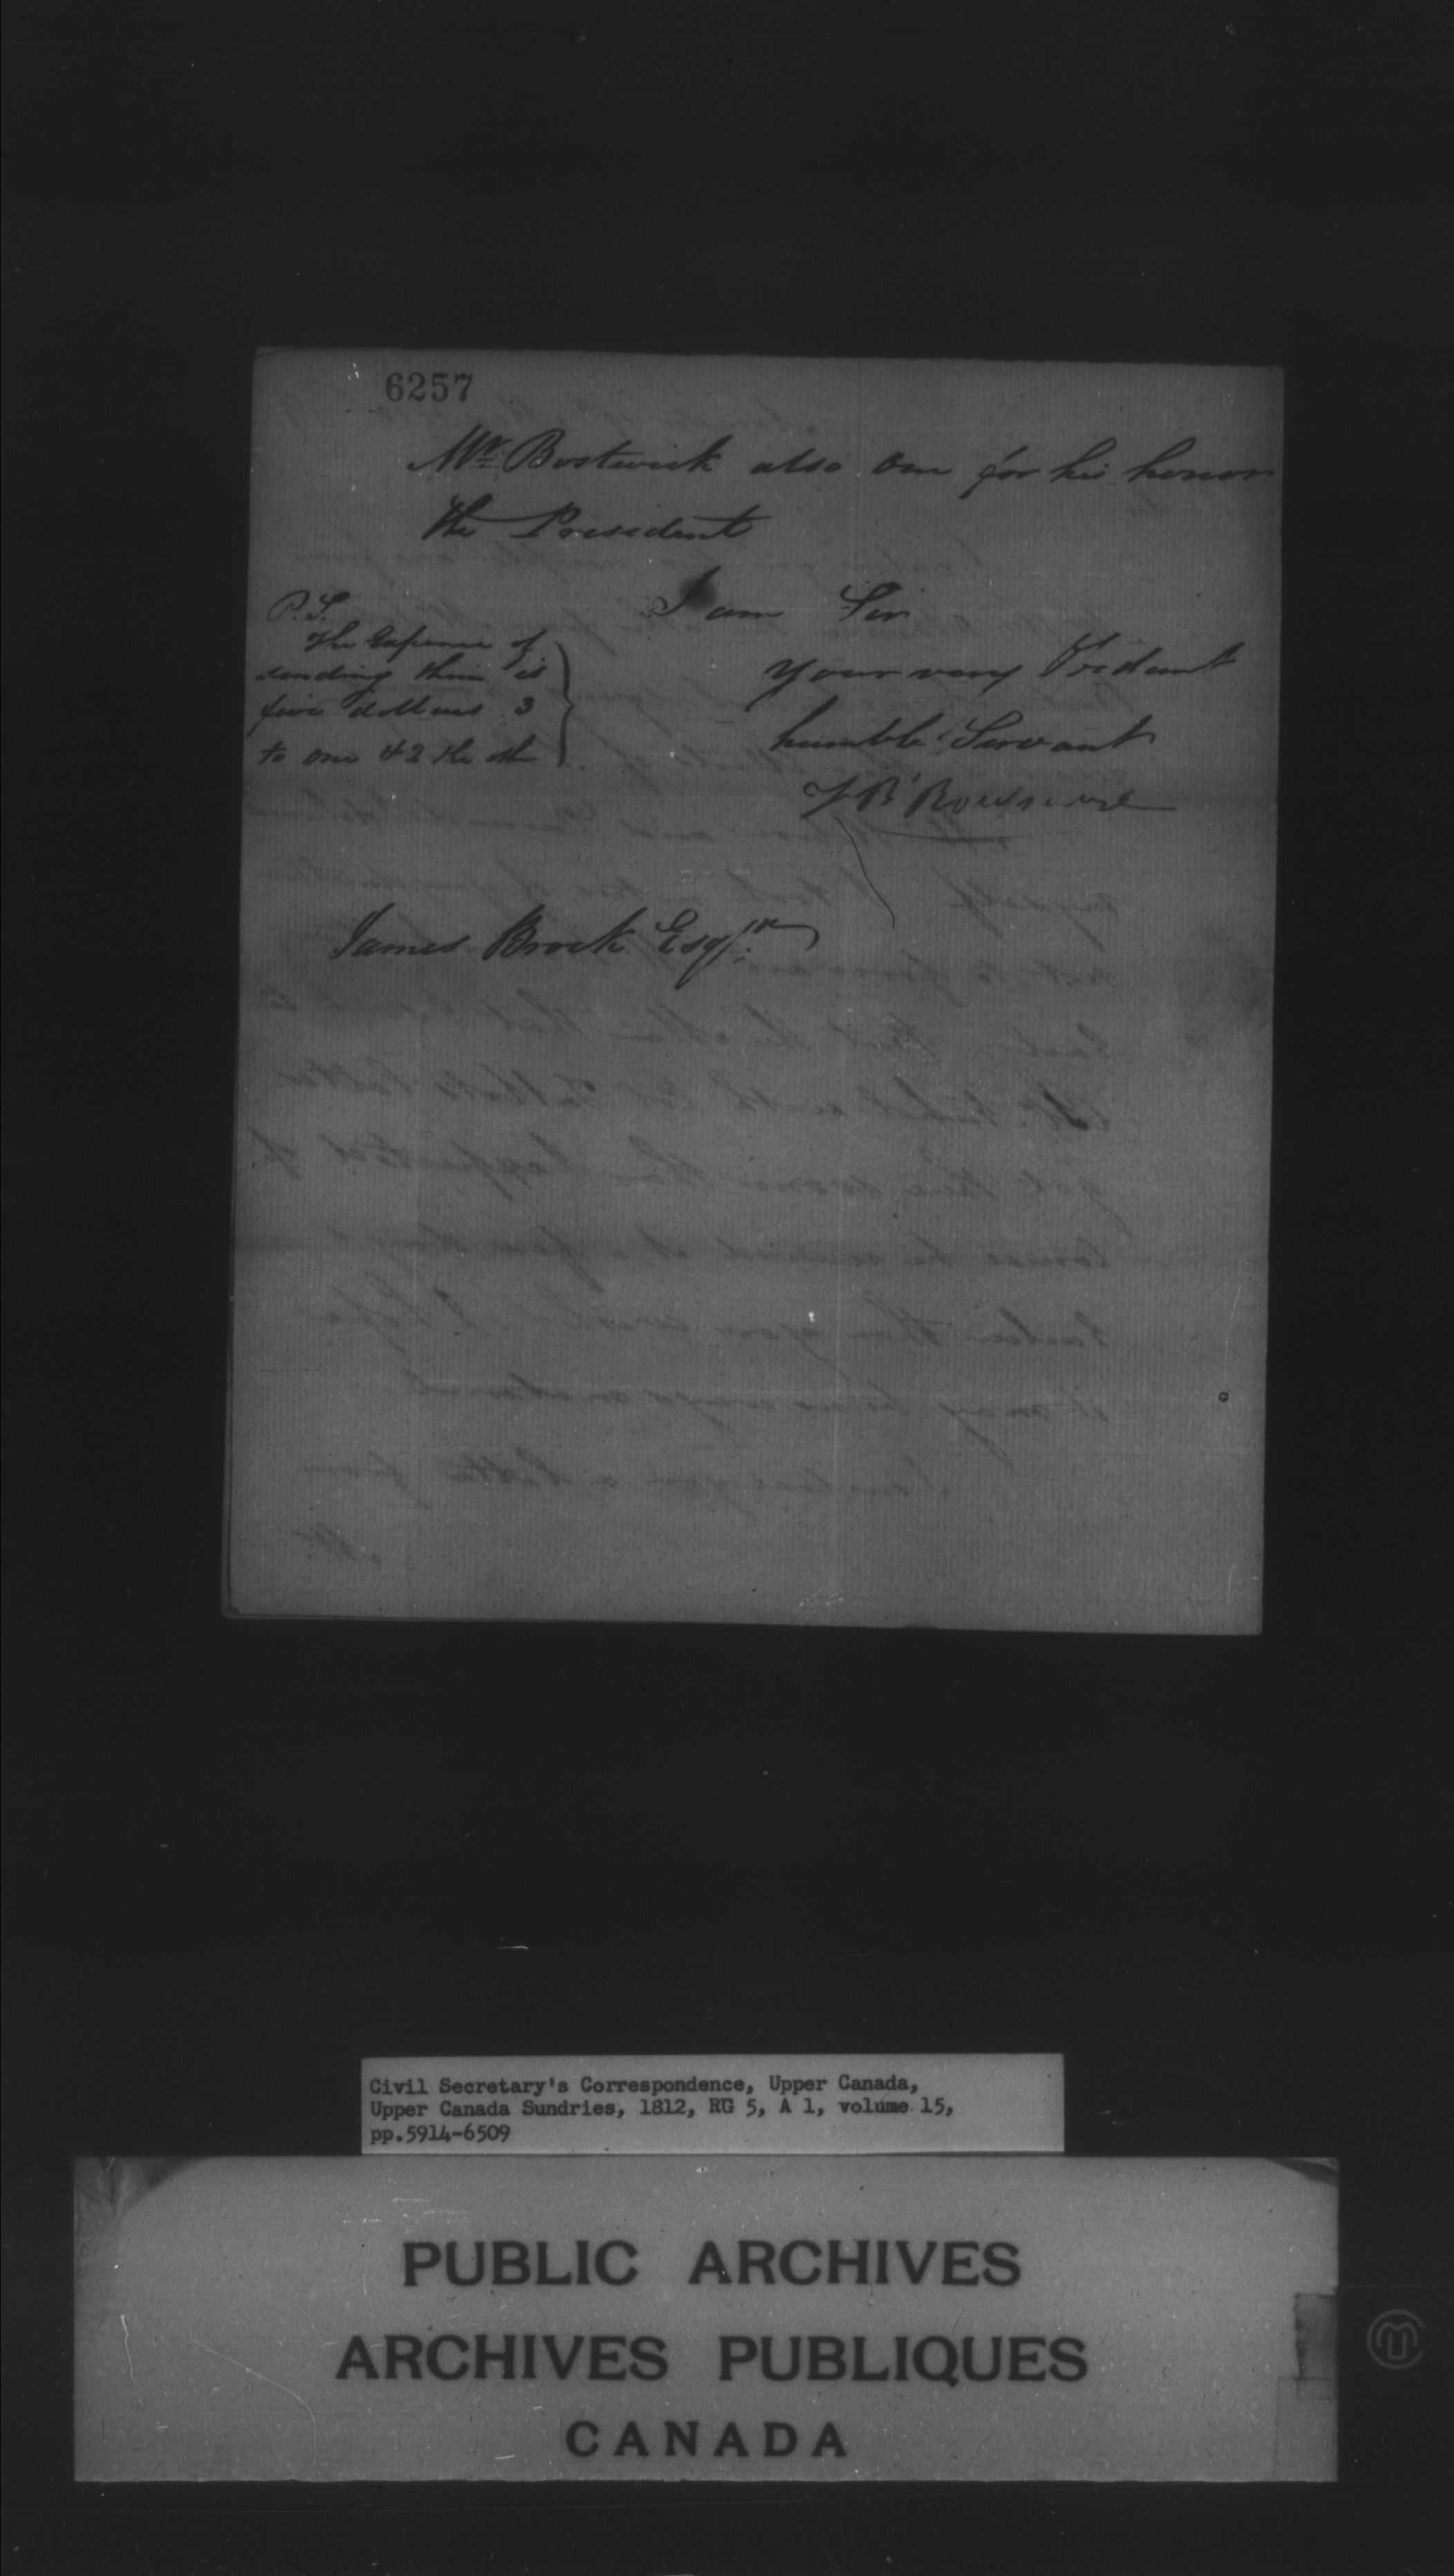 6257
Mr. Bostwick also One for his honor
the President
I am Sir
your very Obedient
humble Servant
J B Rousseaux
P.S.
The Expence of
sending them is
five dollars 3
to one & 2 the othr
James Brock Esqr.
Civil Secretary's Correspondence, Upper Canada,
Upper Canada Sundries, 1812, RG 5, A 1, volume 15,
pp.5914-6509
PUBLIC ARCHIVES
ARCHIVES PUBLIQUES
CANADA